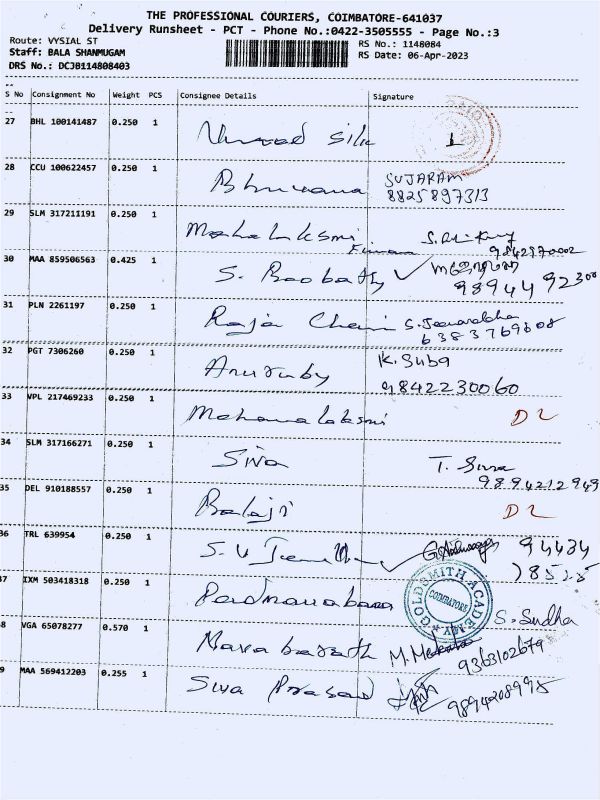 THE PROFESSIONAL COURIERS, COIMBATORE-641037
Delivery Runsheet - PCT - Phone No.:0422-3505555 - Page No.:3
Route: VYSIAL ST
Staff: BALA SHANMUGAM
DRS No.: DCJB114808403
RS No.: 1148084
RS Date: 06-Apr-2023
S No Consignment No Weight PCS Consignee Details Signature
27 BHL 100141487 0.250 1
28 CCU 100622457 0.250 1 Bhuvana SUJARAM
8825897313
29 SLM 317211191 0.250 1 Mahalakshmi
30 MAA 859506563 0.425 1 S.
31 PLN 2261197 0.250 1 Raja
32 PGT 7306260 0.250 1 Anuruby K. Suba
9842230060
33 VPL 217469233 0.250 1 D2
34 SLM 317166271 0.250 1 Siva T. Siva
9894212949
35 DEL 910188557 0.250 1 Balaji D2
36 TRL 639954 0.250 1 94434
78525
37 IXM 503418318 0.250 1 Padmanabana S. Sudha
GOLDSMITH ACADEMY
COIMBATORE
38 VGA 65078277 0.570 1 M.
9363102679
39 MAA 569412203 0.255 1 Siva Prasad
9894208995